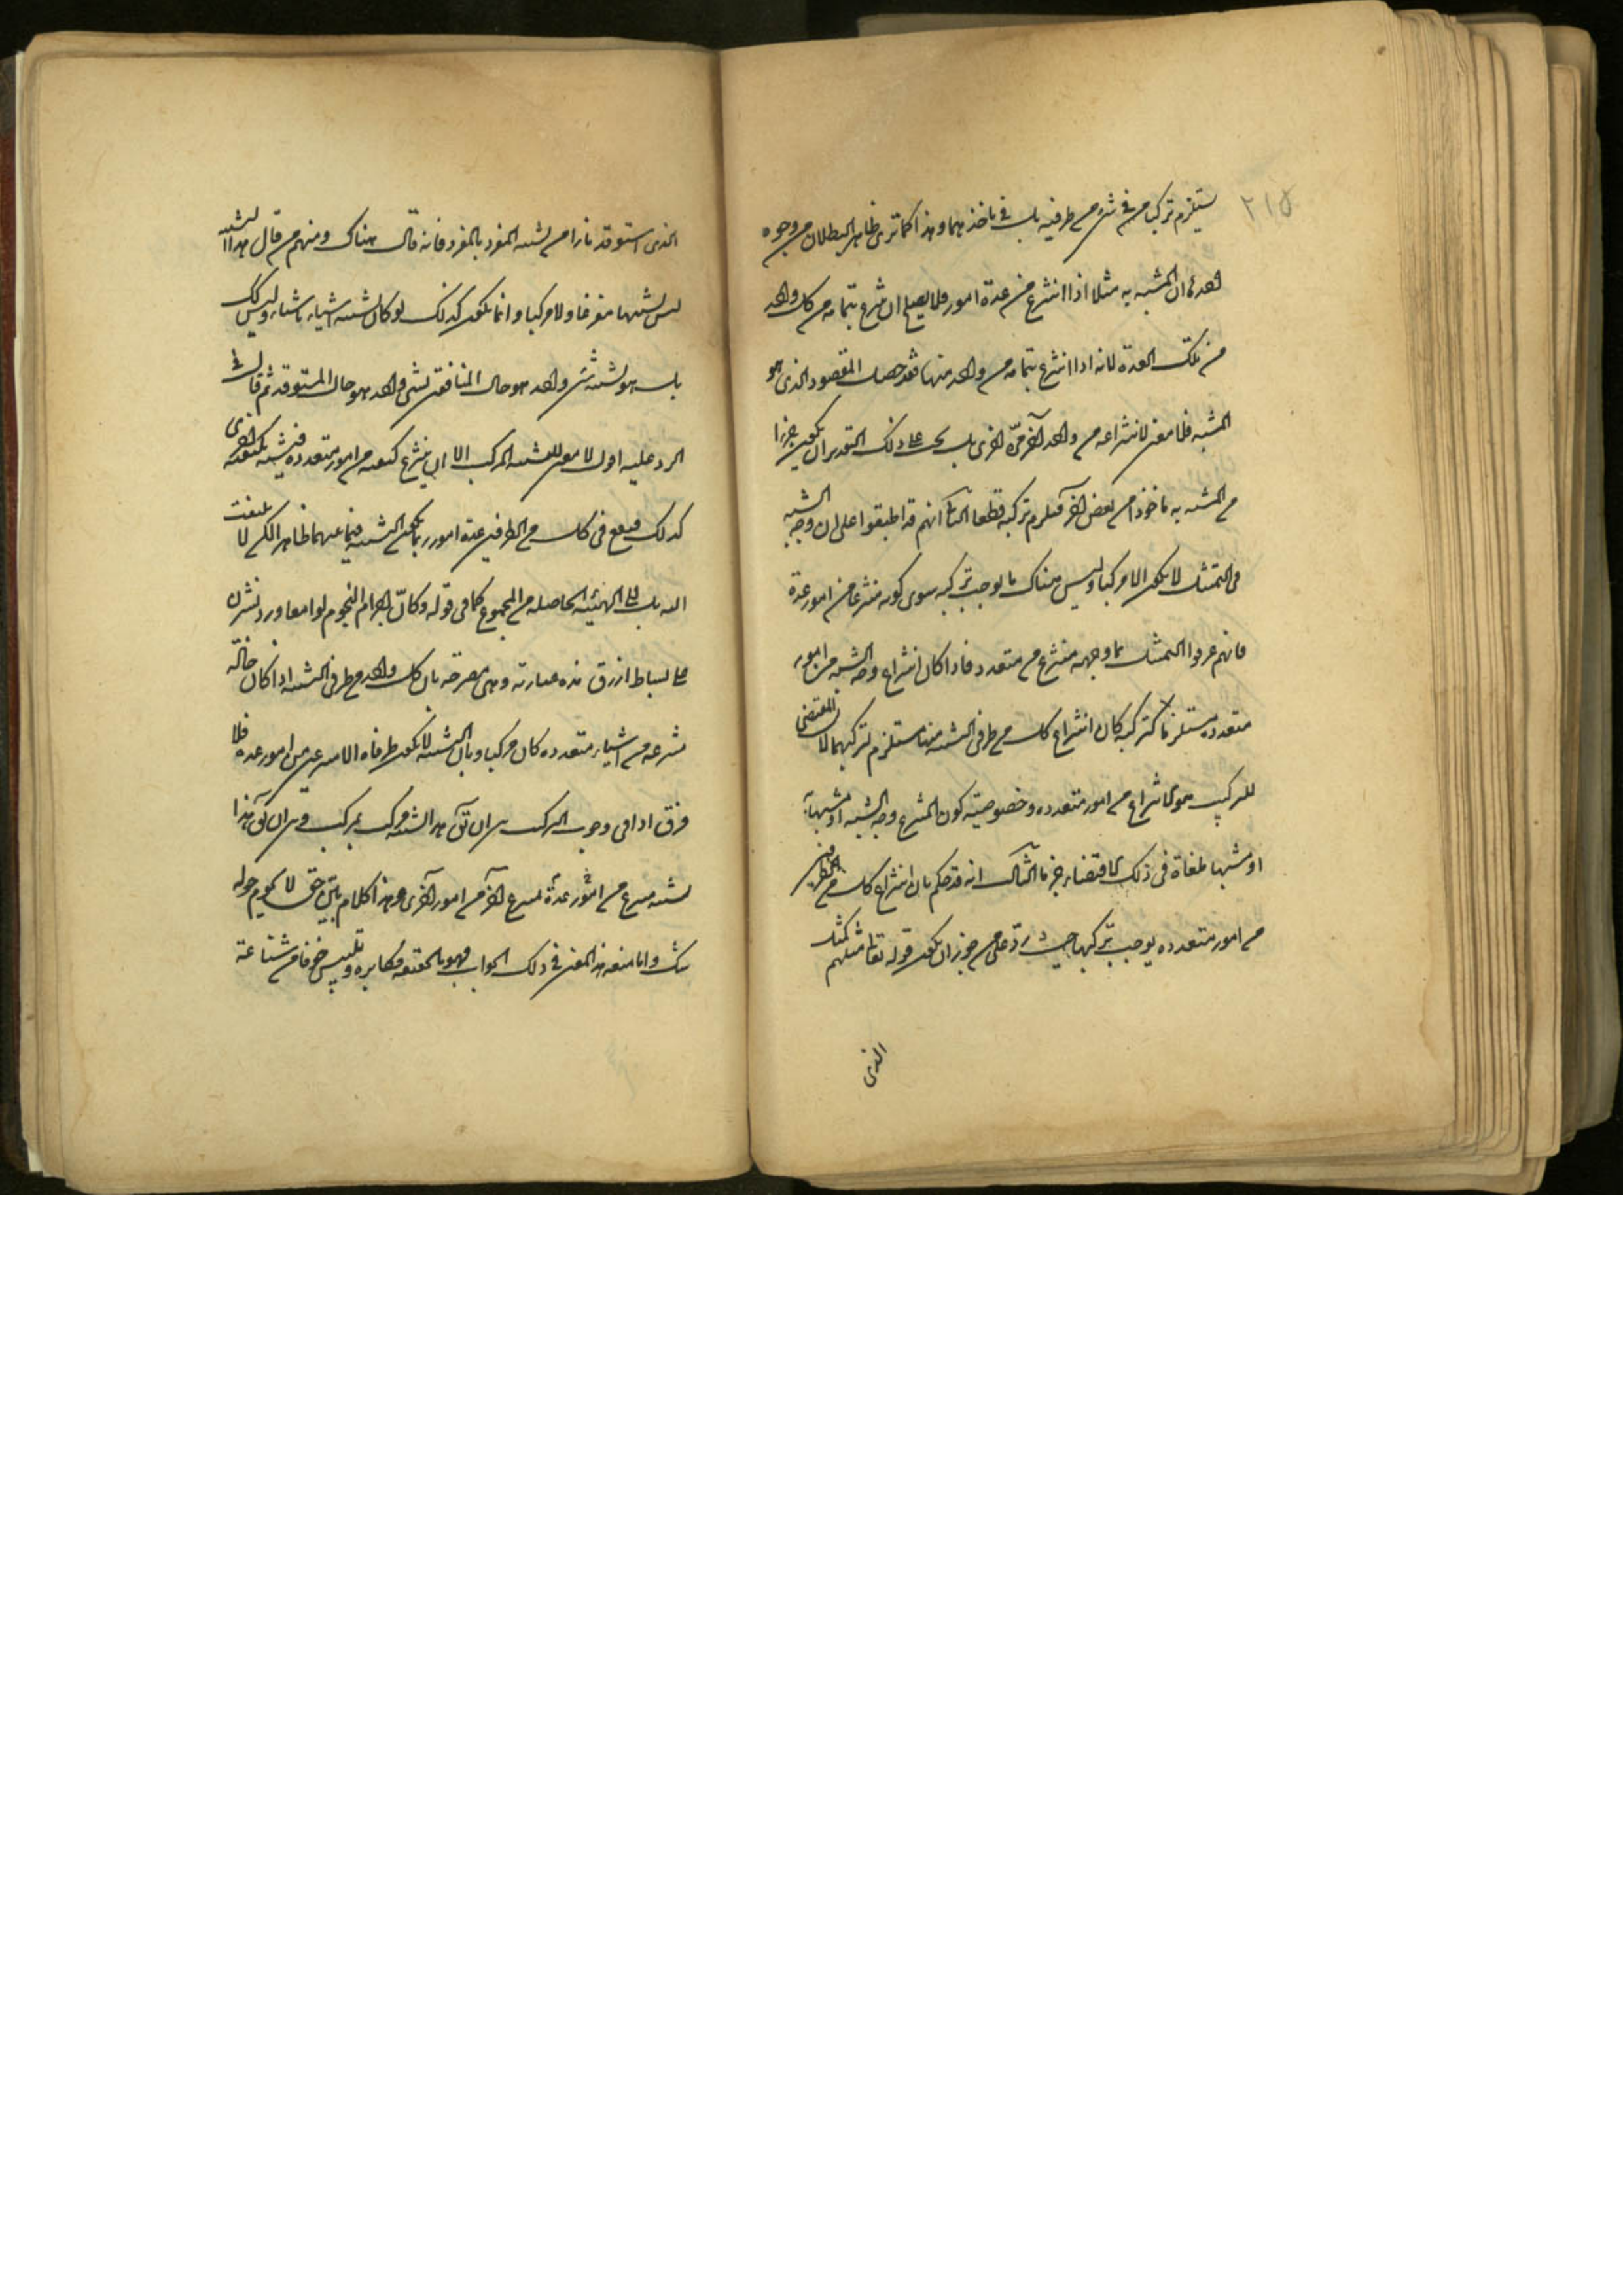 ٢١٥
يستلزم تركبا من في شئ من طرفيه بل في ماخذهما وهذا كما ترى ظاهر البطلان من وجوه
احدها ان المشبه به مثلا اذا انتزع من عدة امور فلا يصح ان ينتزع بتمامه من كل واحد
من تلك العدة لانه اذا انتزع بتمامه من واحد منها فقد حصل المقصود الذى هو
المشبه فلا معنى لانتزاعه من واحد آخر مرة اخرى بل يجب على ذلك التقدير ان يكون جزءا
من المشبه به ماخوذا من بعض آخر فيلزم تركبه قطعا الثانى انهم قد اطبقوا على ان وجه الشبه
فى التمثيل لا يكون الا مركبا وليس هناك ما يوجب تركبه سوى كونه منتزعا من امور عدة
فانهم عرفوا التمثيل بما وجهه منتزع من متعدد فاذا كان انتزاع وجه الشبه من امور
متعددة مستلزما لتركبه كان انتزاع كل من طرفى التشبيه منها مستلزم لتركبهما لان المقتضى
للتركيب هو الانتزاع من امور متعددة وخصوصية كون المنتزع وجه الشبه او مشبها به
او مشبها ملغاة فى ذلك الاقتضاء جزما الثالث انه قد حكم بان انتزاع كل من الطرفين
من امور متعددة يوجب تركبها حيث رد على من جوز ان يكون قوله تعالى مثلهم كمثل
الذى
الذى استوقد نارا من تشبيه المفرد بالمفرد فانه قال هناك ومنهم من قال هذا التشبيه
ليس تشبيها مفرقا ولا مركبا وانما يكون كذلك لو كان تشبيه اشياء باشياء وليس كذلك
بل هو تشبيه شئ واحد هو حال المنافقين بشئ واحد هو حال المستوقد ثم قال فى
الرد عليه اقول لا معنى للتشبيه المركب الا ان ينتزع كيفية من امور متعددة فيشبه بكيفية اخرى
كذلك فيقع فى كل من الطرفين عدة امور ربما يكون التشبيه فيما بينهما ظاهرا لكن لا يلتفت
اليه بل الى الهيئة الحاصلة من المجموع كما فى قوله وكأنّ اجرام النجوم لوامعا درر نثرن
على بساط ازرق هذه عبارته وهى مصرحة بان كل واحد من طرفى التشبيه اذا كان حالة
منتزعة من اشياء متعددة كان مركبا وبان التشبيه لا يكون طرفاه الا منتزعين من امور عدة فلا
فرق اذا فى وجوب التركيب بين ان يقال هذا التشبيه مركب بمركب وبين ان يقال هذا
تشبيه منتزع من امور عدة بمنتزع آخر من امور اخرى وهذا كلام بيّن حتى لا يحوم حوله
شك واما منعه هذا المعنى فى ذلك الجواب فهو بالحقيقة مكابرة وتلبيس خوفا من شناعة